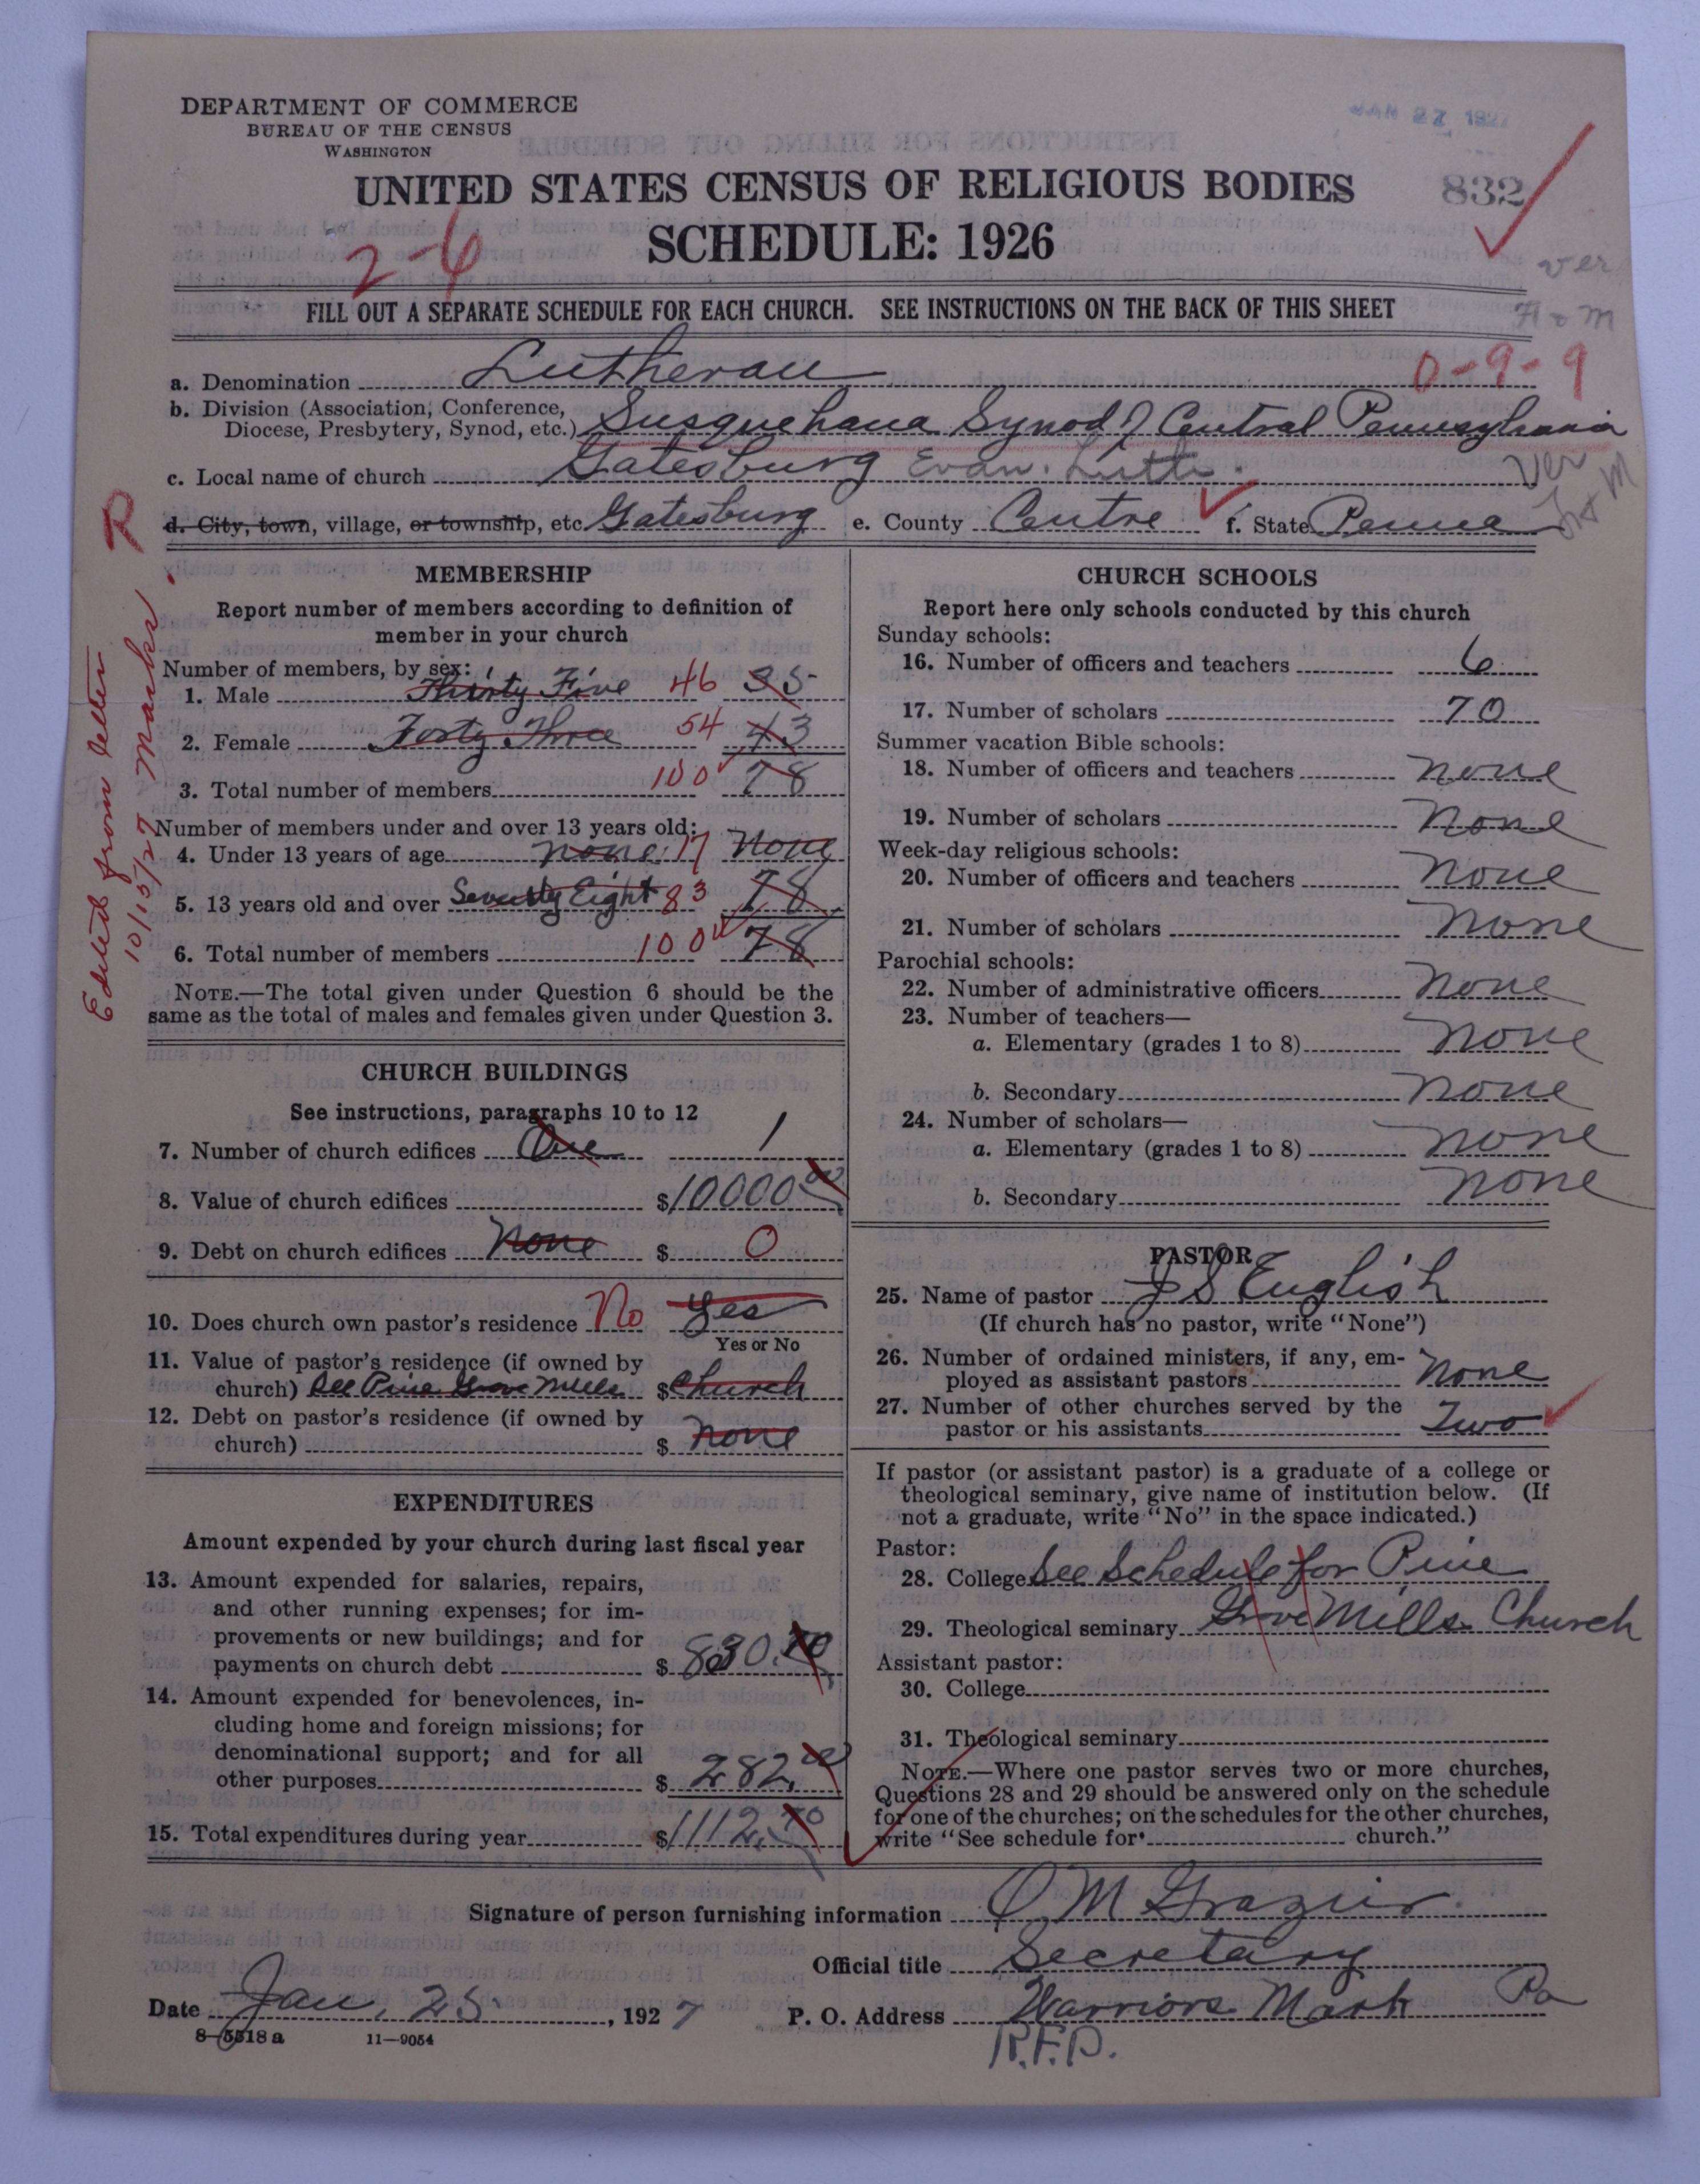 DEPARTMENT OF COMMERCE
BUREAU OF THE CENSUS
WASHINGTON
JAN 27 1927
UNITED STATES CENSUS OF RELIGIOUS BODIES
832
SCHEDULE: 1926
2-6
ver
H & M
FILL OUT A SEPARATE SCHEDULE FOR EACH CHURCH. SEE INSTRUCTIONS ON THE BACK OF THIS SHEET
a. Denomination Lutheran 0-9-9
b. Division (Association, Conference, Diocese, Presbytery, Synod, etc.) Susquehana Synod of Central Pennsylvania
c. Local name of church Gatesburg Evan. Luth. Ver
d. City, town, village, or township, etc. Gatesburg e. County Centre f. State Penna
R
Edited from letter
10/15/27 Marks.
MEMBERSHIP
Report number of members according to definition of
member in your church
Number of members, by sex:
1. Male Thirty Five 46 35
2. Female Forty Three 54 43
3. Total number of members 100 78
Number of members under and over 13 years old:
4. Under 13 years of age none 17 None
5. 13 years old and over Seventy Eight 83 78
6. Total number of members 100 78
NOTE.—The total given under Question 6 should be the
same as the total of males and females given under Question 3.
CHURCH BUILDINGS
See instructions, paragraphs 10 to 12
7. Number of church edifices One 1
8. Value of church edifices $10000.00
9. Debt on church edifices None $ 0
10. Does church own pastor's residence No Yes
Yes or No
11. Value of pastor's residence (if owned by
church) See Pine Grove Mills $ Church
12. Debt on pastor's residence (if owned by
church) $ none
EXPENDITURES
Amount expended by your church during last fiscal year
13. Amount expended for salaries, repairs,
and other running expenses; for im-
provements or new buildings; and for
payments on church debt $ 830.70
14. Amount expended for benevolences, in-
cluding home and foreign missions; for
denominational support; and for all
other purposes $ 282.00
15. Total expenditures during year $1112.70
CHURCH SCHOOLS
Report here only schools conducted by this church
Sunday schools:
16. Number of officers and teachers 6
17. Number of scholars 70
Summer vacation Bible schools:
18. Number of officers and teachers none
19. Number of scholars None
Week-day religious schools:
20. Number of officers and teachers None
21. Number of scholars None
Parochial schools:
22. Number of administrative officers None
23. Number of teachers—
a. Elementary (grades 1 to 8) None
b. Secondary none
24. Number of scholars—
a. Elementary (grades 1 to 8) none
b. Secondary none
PASTOR
25. Name of pastor J S English
(If church has no pastor, write "None")
26. Number of ordained ministers, if any, em-
ployed as assistant pastors None
27. Number of other churches served by the
pastor or his assistants Two
If pastor (or assistant pastor) is a graduate of a college or
theological seminary, give name of institution below. (If
not a graduate, write "No" in the space indicated.)
Pastor:
28. College See Schedule for Pine
29. Theological seminary Grove Mills Church
Assistant pastor:
30. College
31. Theological seminary
NOTE.—Where one pastor serves two or more churches,
Questions 28 and 29 should be answered only on the schedule
for one of the churches; on the schedules for the other churches,
write "See schedule for church."
Signature of person furnishing information O M Grazier
Official title Secretary
Date Jan. 25, 1927 P. O. Address Warriors Mark Pa
R.F.D.
8—5518 a 11—9054